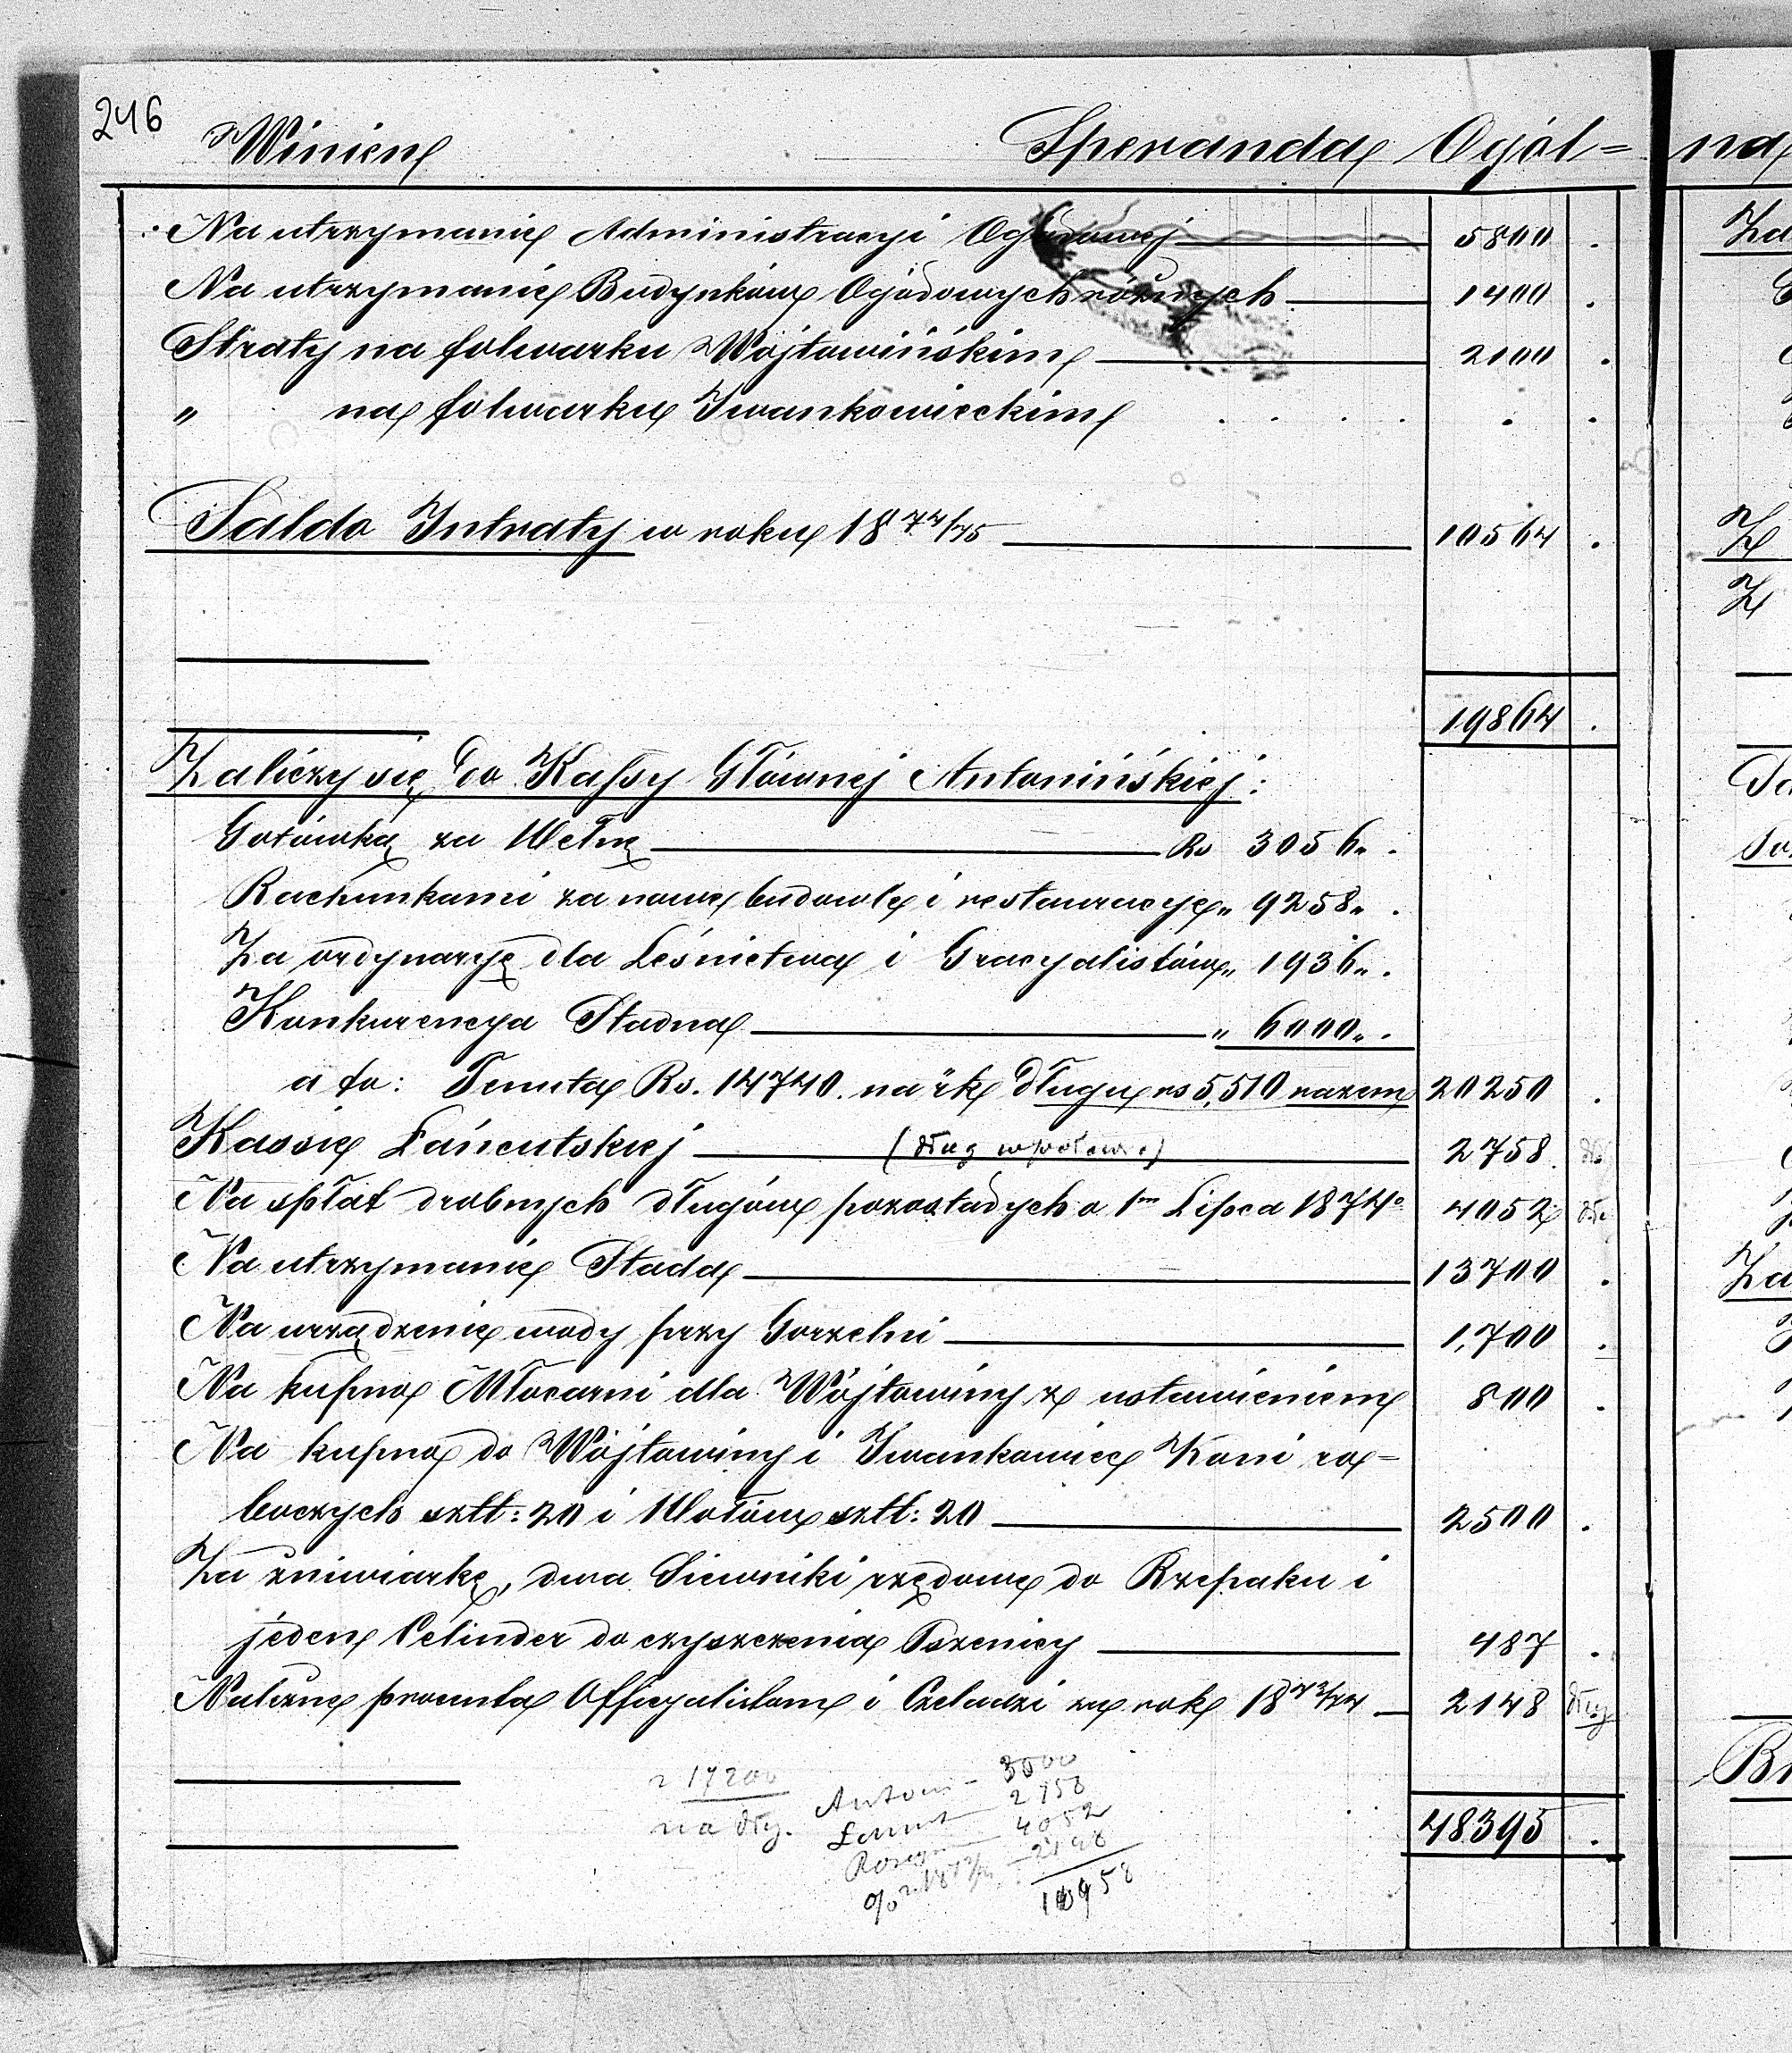 246
Winien Speranda Ogól= na
Na utrzymanie Administracyi Ogrodowej 5800 .
Na utrzymanie Budynków Ogrodowych różnych 1400 .
Straty na folwarku Wójtowińskim 2100 .
„ na folwarku Iwankowieckim . . . . . .
Saldo Intraty w roku 1874/75 10564 .
19864 .
Zaliczy się do Kassy Głównej Antonińskiej:
Gotówką za Wełnę Rs 3056 „ .
Rachunkami za nowe budowle i restauracye „ 9258 „ .
Za ordynaryę dla Leśnictwa i Gracyalistów „ 1936 „ .
Konkurencya Stadna „ 6000 „ .
a to: Tenuta Rs. 14740. na rk Długu rs 5,510 razem 20250 .
Kassie Łańcutskiej (dług w połowie) 2758 . dłu
Na spłat drobnych długów pozostałych o 1m Lipca 1874o 4052 dłu
Na utrzymanie Stada 13700 .
Na urządzenie wody przy Gorzelni 1,700 .
Na kupno Młocarni dla Wójtowiny z ustawieniem 800 .
Na kupno do Wójtowiny i Iwankowiec Koni ro=
boczych sztt: 20 i Wołów sztt: 20 2500 .
Za żniwiarkę, dwa Siewniki rzędowe do Rzepaku i
jeden Celinder do czyszczenia Pszenicy 487 .
Należne procenta Officyalistom i Czeladzi za rok 1873/74 2148 dług
z 17200 Anton - 3000
na dłg. Łanut 2758
4052
% 1873/74 - 2148
58
48395 .